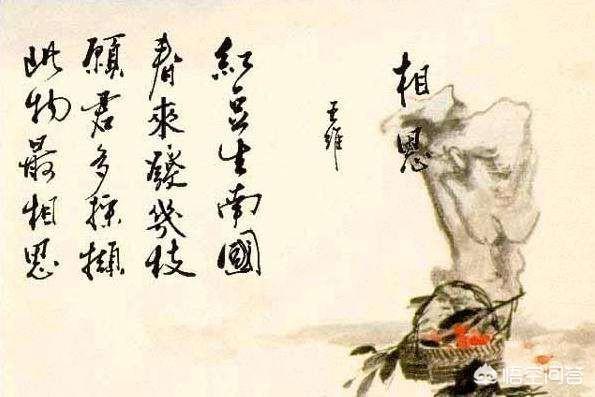 相思
王維
紅豆生南國
春來發幾枝
願君多採擷
此物最相思
悟空问答